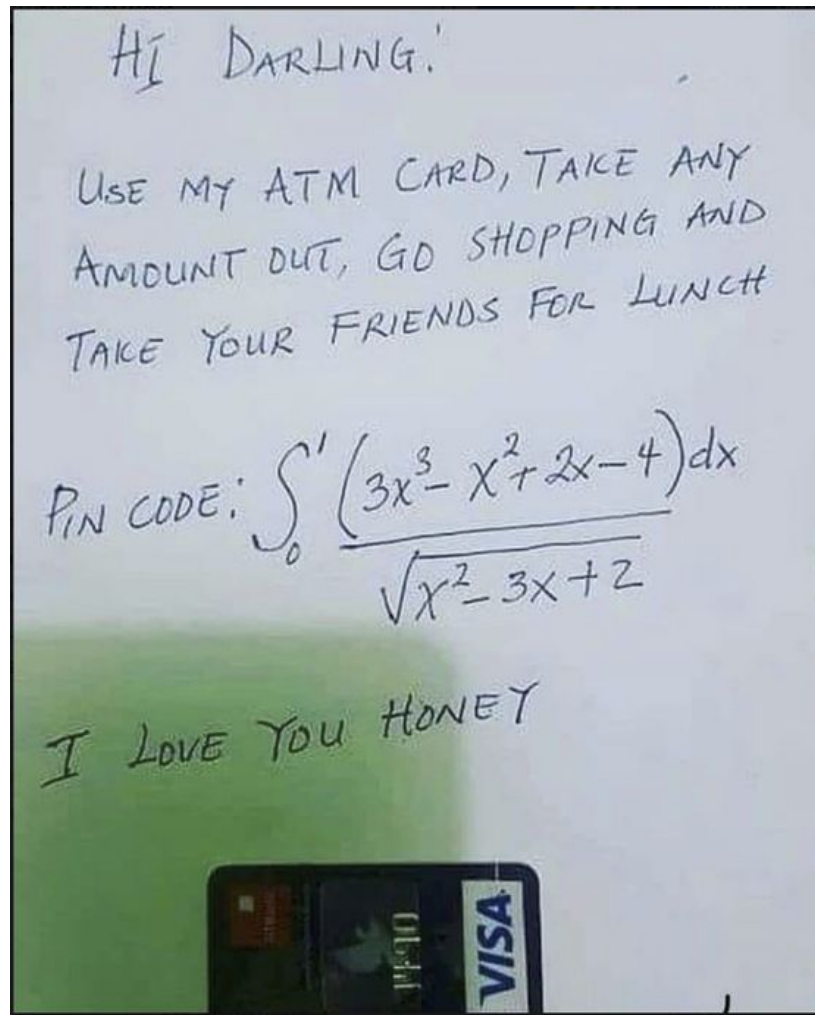 HI DARLING!
USE MY ATM CARD, TAKE ANY
AMOUNT OUT, GO SHOPPING AND
TAKE YOUR FRIENDS FOR LUNCH
PIN CODE: ∫₀¹ (3x³ - x² + 2x - 4)dx / √(x² - 3x + 2)
I LOVE YOU HONEY
VISA